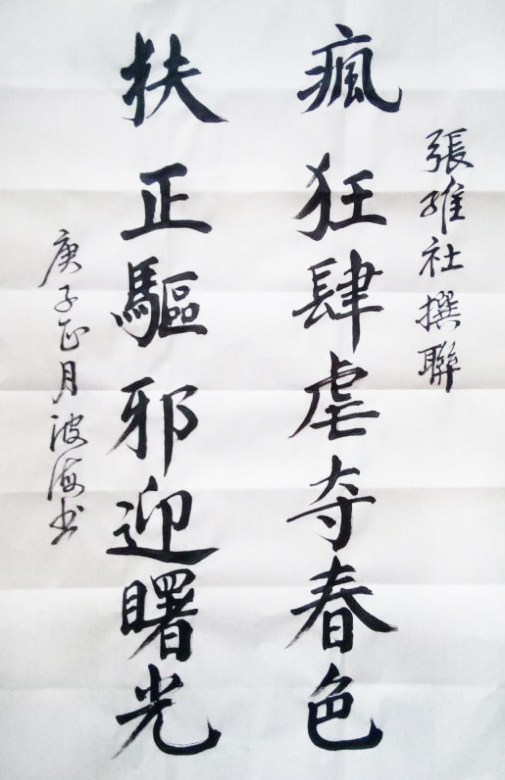 張維社撰聯
瘋狂肆虐夺春色
扶正驅邪迎曙光
庚子正月波海书